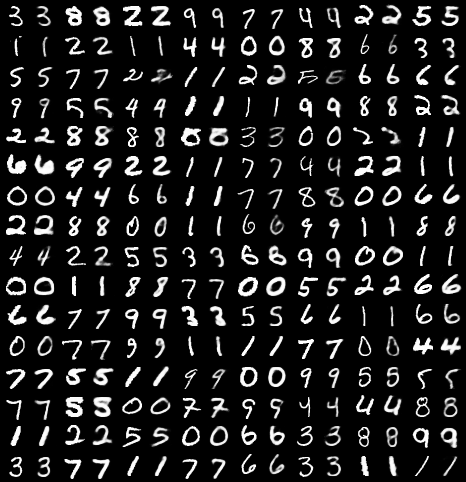 3 3 8 8 2 2 9 9 7 7 4 4 2 2 5 5
1 1 2 2 1 1 4 4 0 0 8 8 6 6 3 3
5 5 7 7 2 2 1 1 2 2 5 5 6 6 6 6
9 9 5 5 4 4 1 1 1 1 9 9 8 8 2 2
2 2 8 8 8 8 0 0 3 3 0 0 2 2 1 1
6 6 9 9 2 2 1 1 7 7 4 4 2 2 1 1
0 0 4 4 6 6 1 1 7 7 8 8 0 0 6 6
2 2 8 8 0 0 1 1 6 6 9 9 1 1 8 8
4 4 2 2 5 5 3 3 6 8 9 9 0 0 1 1
0 0 1 1 8 8 7 7 0 0 5 5 2 2 6 6
6 6 7 7 9 9 3 3 5 5 6 6 1 1 6 6
0 0 7 7 9 9 1 1 1 1 7 7 0 0 4 4
7 7 5 5 1 1 9 9 0 0 9 9 5 5 5 5
7 7 5 5 0 0 7 7 9 9 4 4 4 4 8 8
1 1 2 2 5 5 0 0 6 6 3 3 8 8 9 9
3 3 7 7 1 1 7 7 6 6 3 3 1 1 1 1